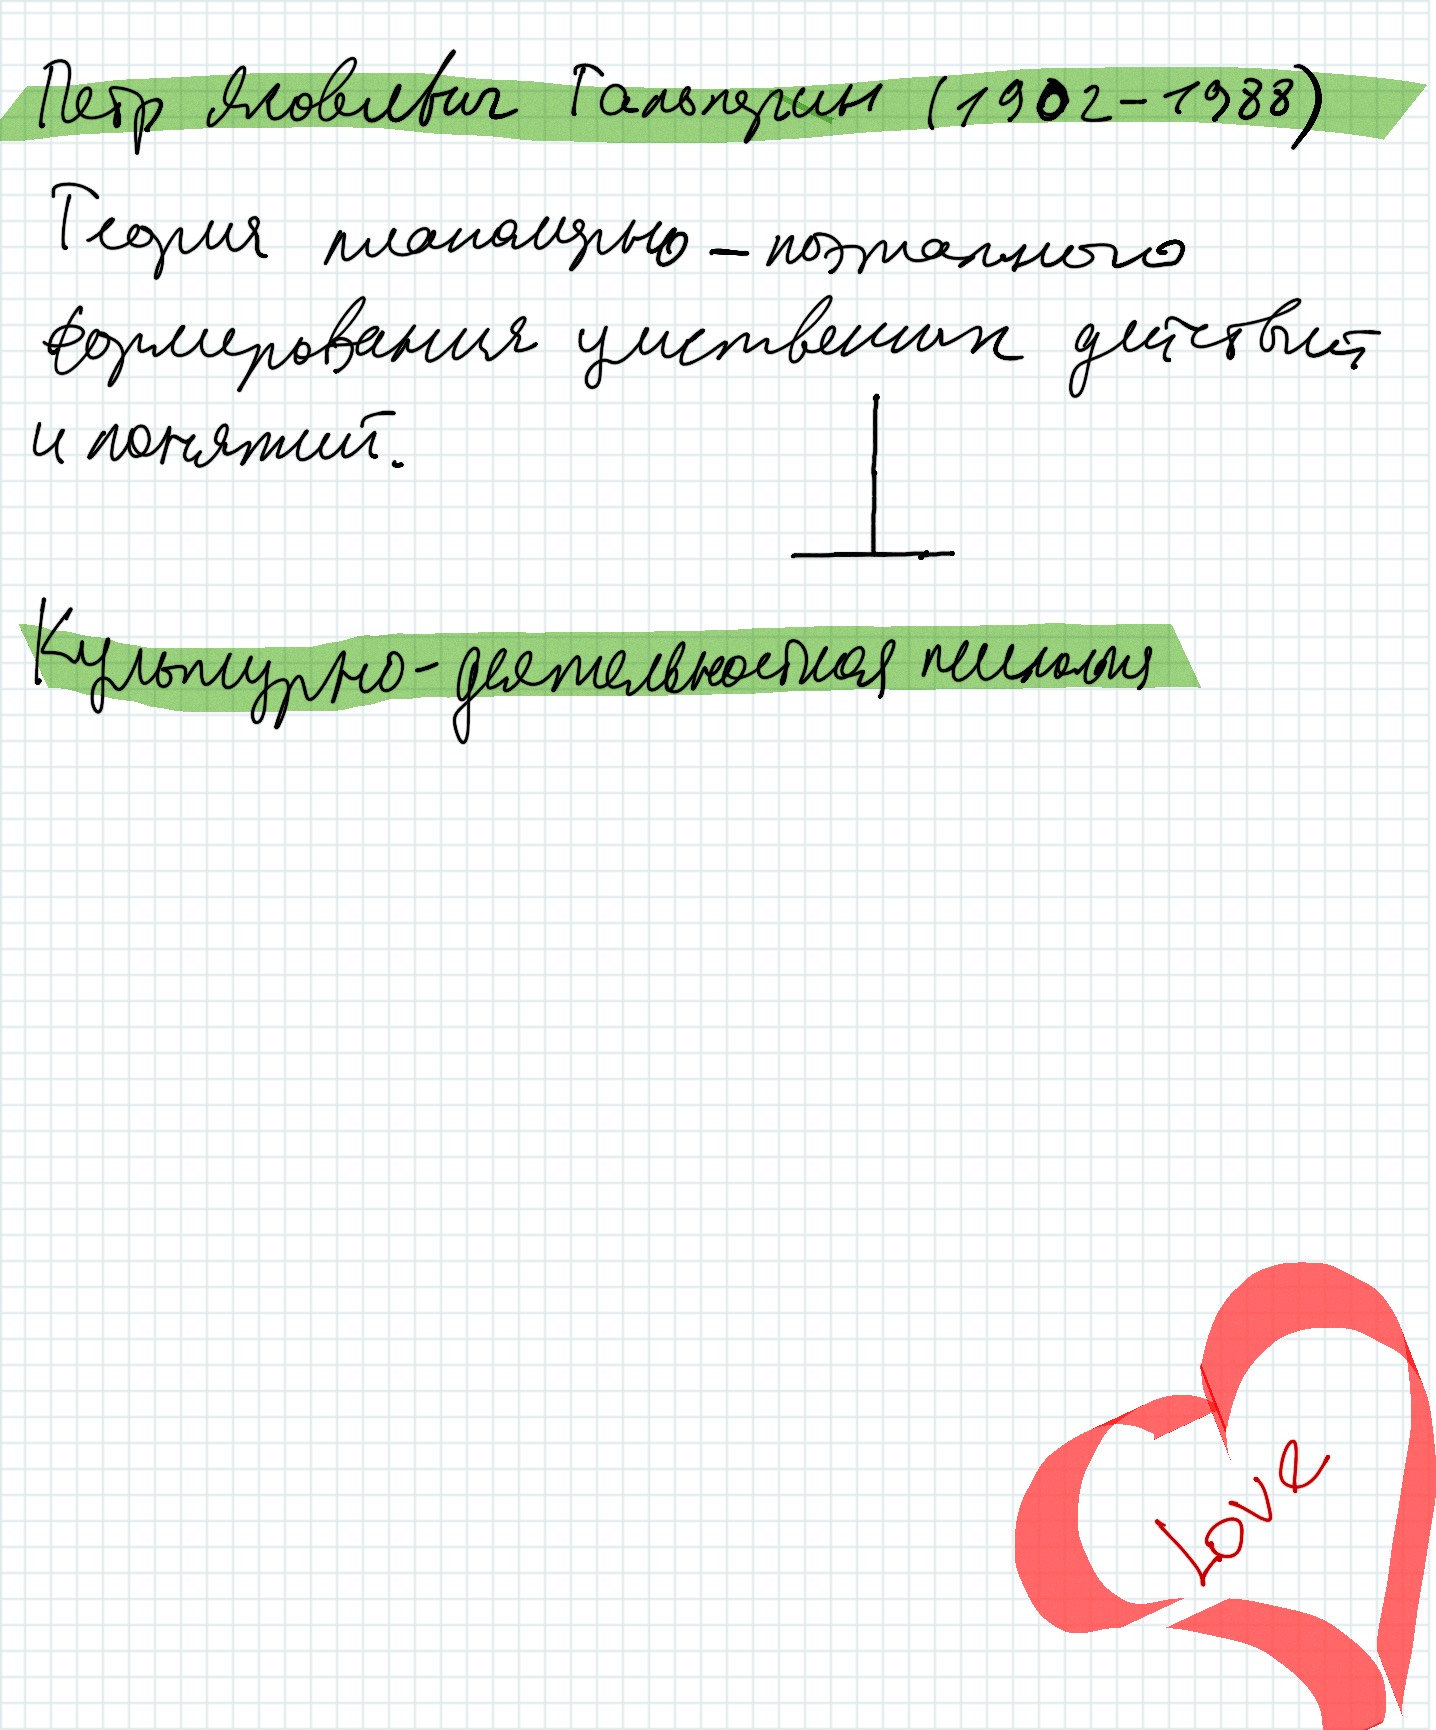 Петр Яковлевич Гальперин (1902-1988)
Теория планомерно-поэтапного
формирования умственных действий
и понятий.
Культурно-деятельностная
Love